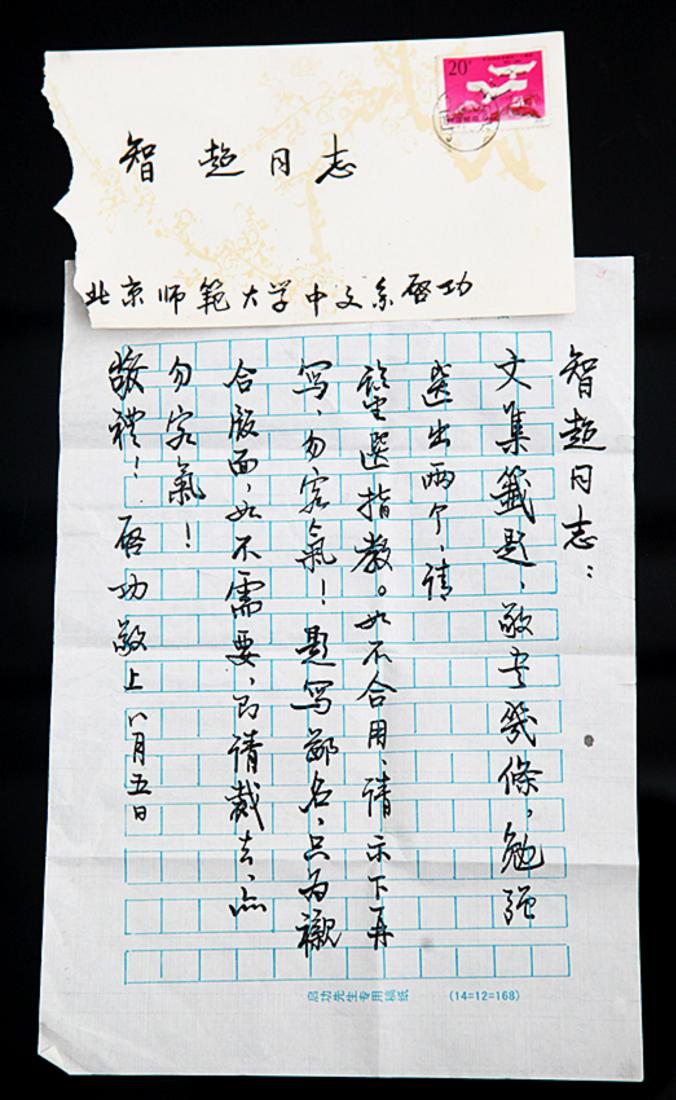 20分
智超同志
北京师範大学中文系啓功
智超同志：
文集籤题，敬书幾條，勉强
選出两个，请
選指教。如不合用，请示下再
写，勿客氣！题写鄙名，只为襯
合版面，如不需要，即请裁去，亦
勿客氣！
敬禮！ 啓功敬上 八月五日
启功先生专用稿纸 (14=12=168)